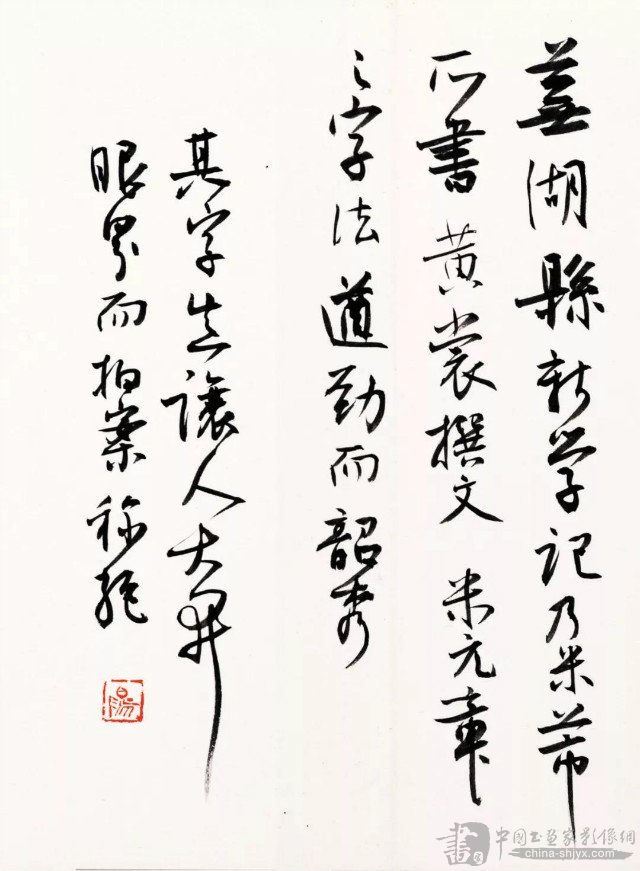 蕪湖縣新学记乃米芾
所書 黄裳撰文 米元章
之字法遒劲而韶秀
其字生讓人大开
眼界而拍案称绝
書 中國书画家影像網
china-shjyx.com